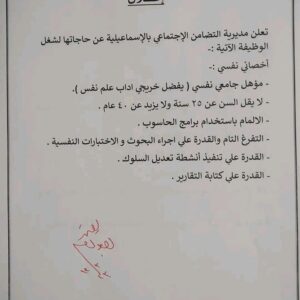 تعلن مديرية التضامن الإجتماعي بالإسماعيلية عن حاجاتها لشغل
الوظيفة الآتية :-
أخصائي نفسي :-
- مؤهل جامعي نفسي ( يفضل خريجي اداب علم نفس ).
- لا يقل السن عن ٢٥ سنة ولا يزيد عن ٤٠ عام .
- الالمام باستخدام برامج الحاسوب .
- التفرغ التام والقدرة علي اجراء البحوث و الاختبارات النفسية .
- القدرة علي تنفيذ أنشطة تعديل السلوك .
- القدرة علي كتابة التقارير .